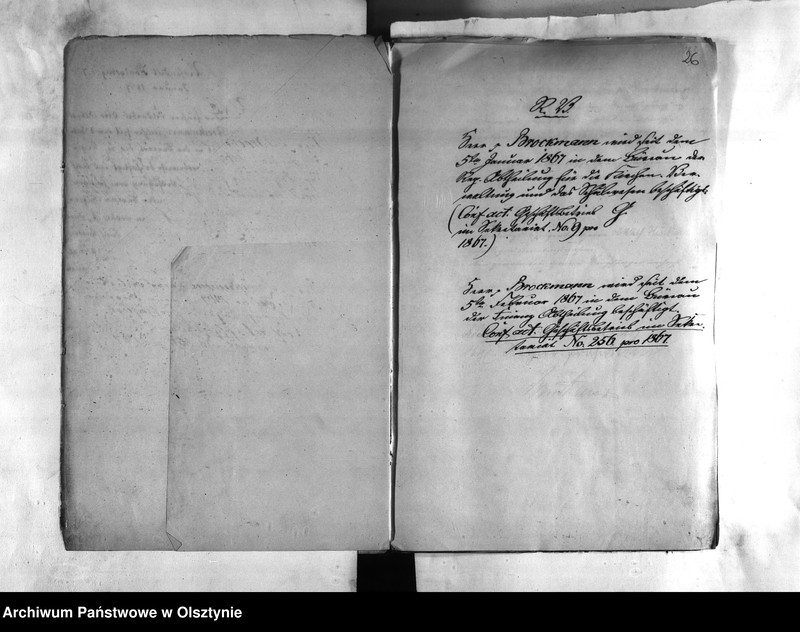 26
R. V.
Herr p. Brockmann wird seit dem
5ten Januar 1867 in dem Büreau der
Reg. Abtheilung für die Kirchen-Ver-
waltung und das Schulwesen beschäftigt.
(Conf. act. Geschäftsbetrieb
im Sekretariat. No. 9 pro
1867.)
Herr p. Brockmann wird seit dem
5ten Februar 1867 in dem Büreau
der Abtheilung beschäftigt.
Conf. act. Geschäftsbetrieb im Sekre-
tariat No. 256 pro 1867
Archiwum Państwowe w Olsztynie